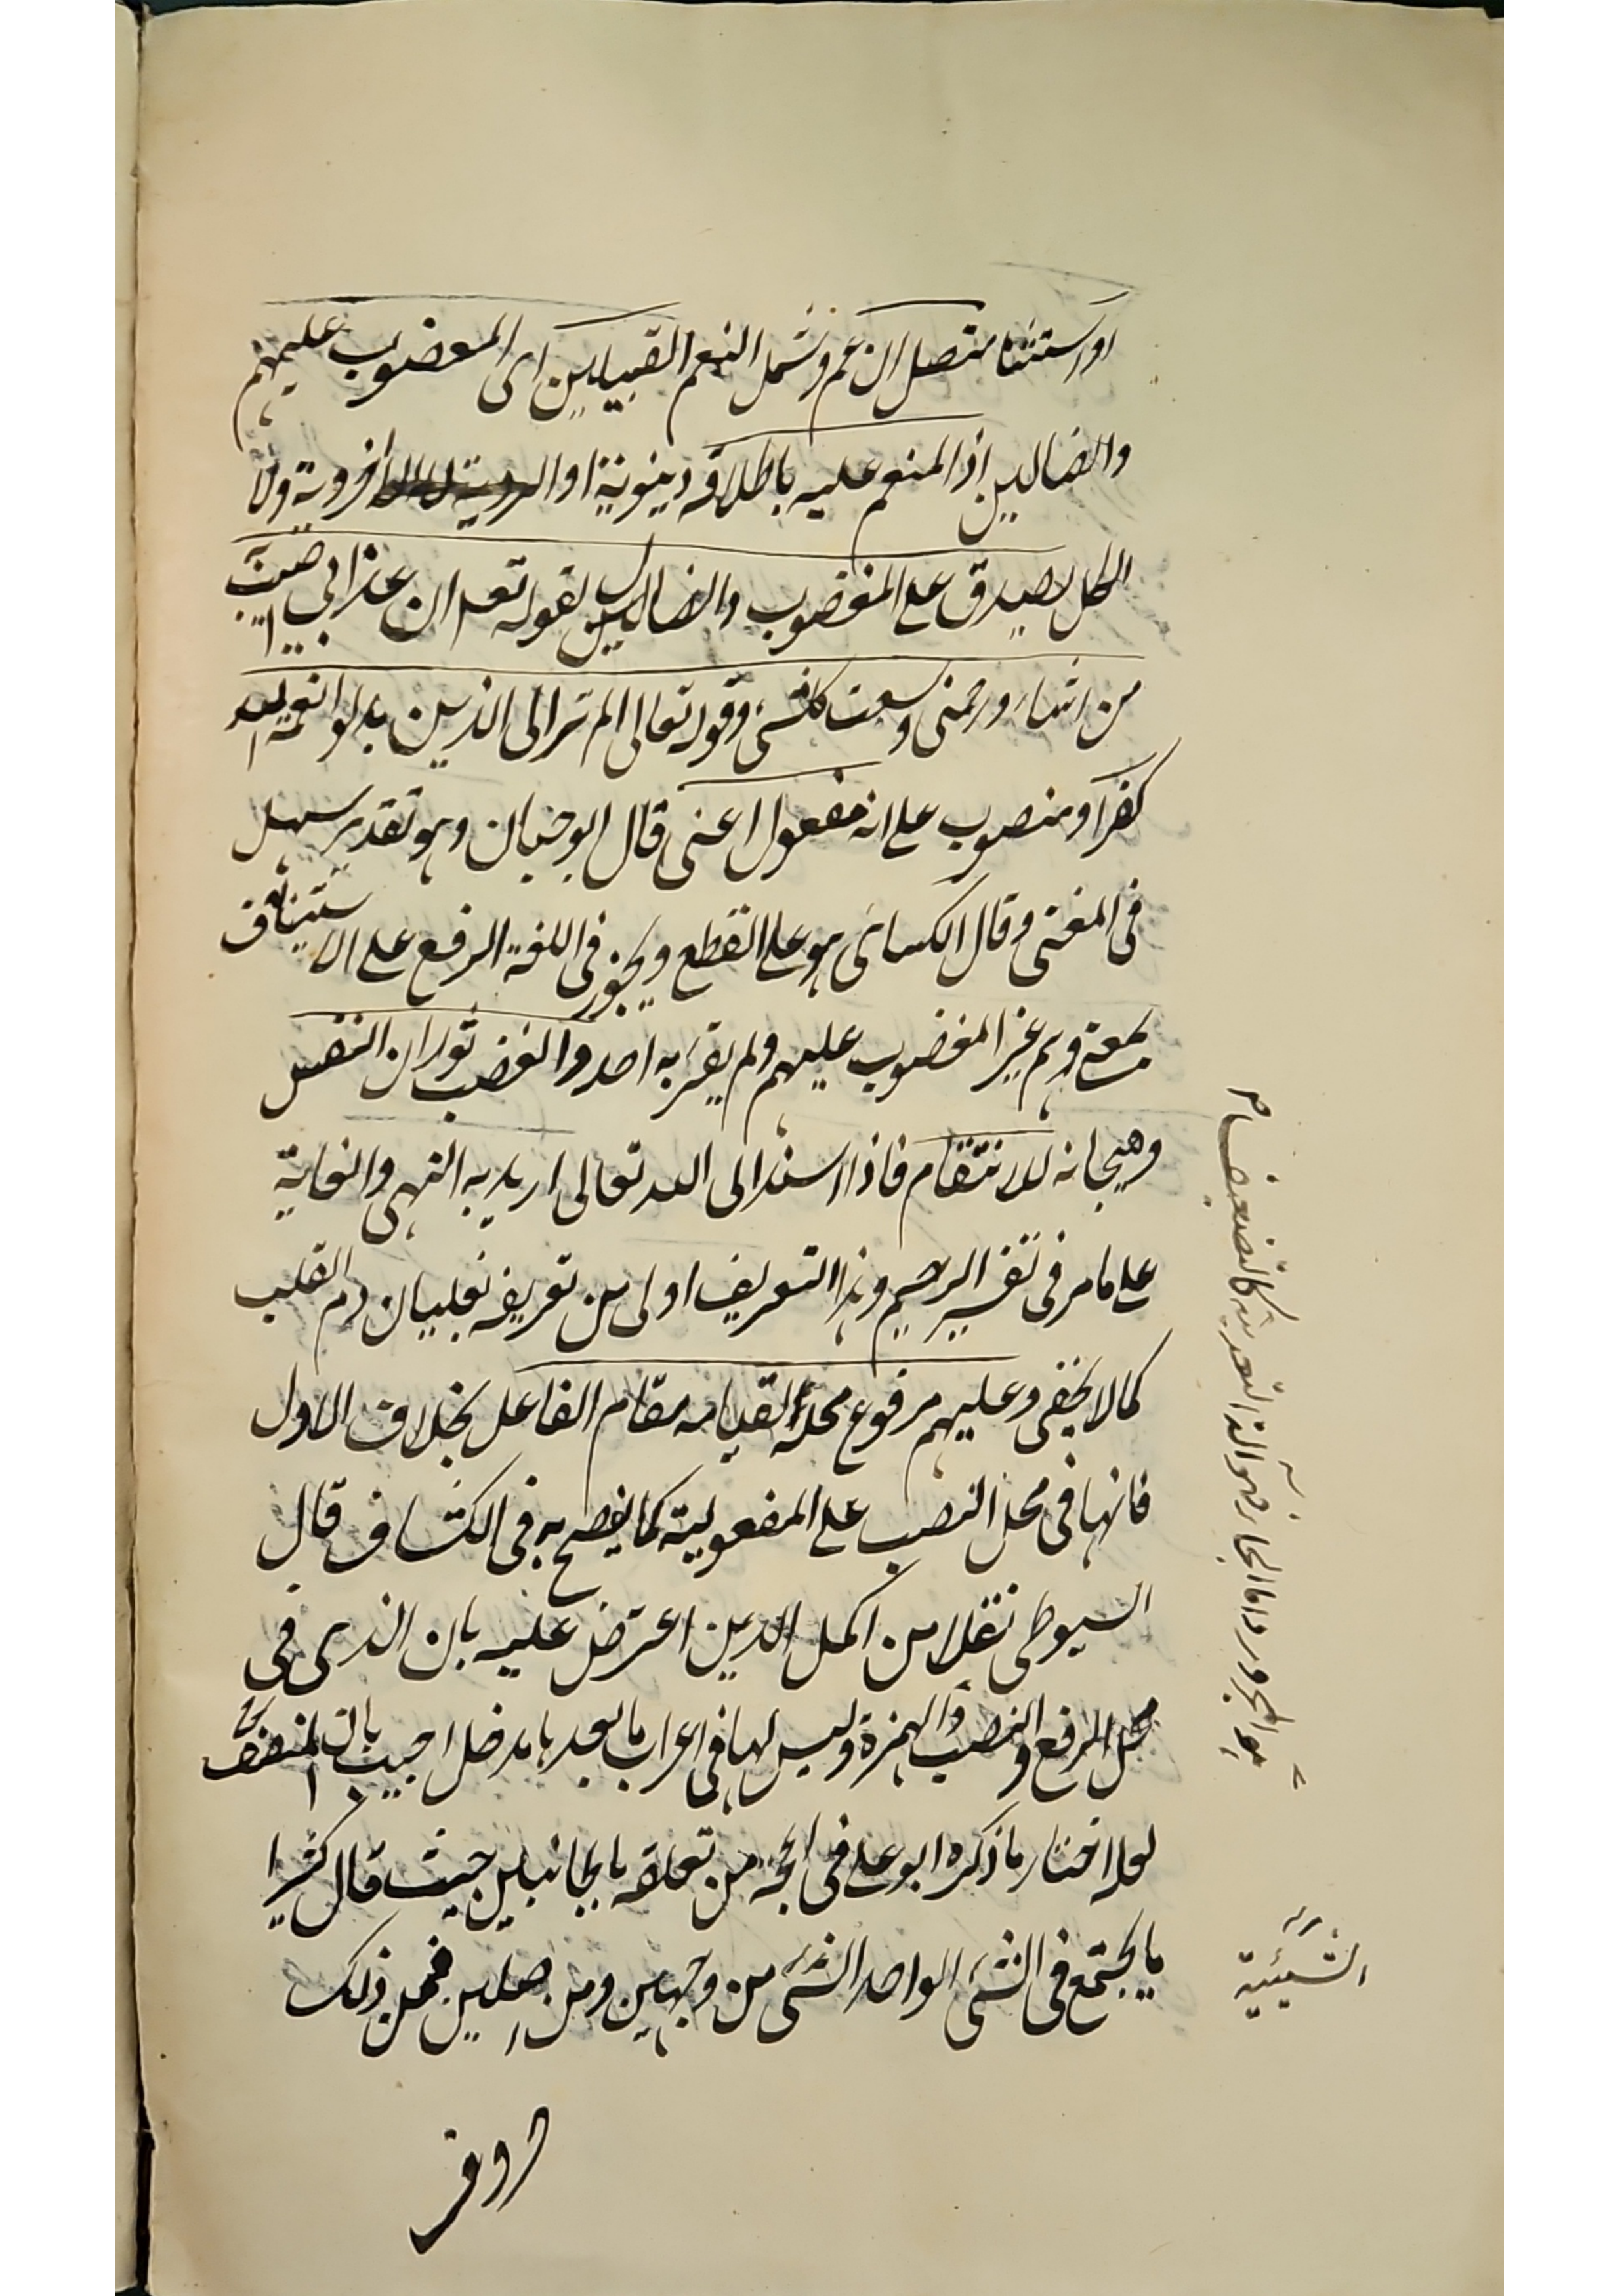 او استثنا متصل ان عم وشمل النعم القبيلين اى المعضوب عليهم
والضالين اذ المنعم عليه باطلاقه دينوية او اخروية ولا
الكل يصدق على المغضوب والضالين لقوله تعـ ان عذابي اصيب
من اشاء ورحمتى وسعت كلشىء وقوله تعالى الم تر الى الذين بدلوا نعمة الله
كفرا ومنصوب على انه مفعول اعنى قال ابو حيان وهو تقدير سهل
فى المغنى وقال الكسائى هو على القطع ويجوز فى اللغة الرفع على الاستيناف
بمعنى وهم غير المغضوب عليهم ولم يقرء به احد والغضب ثوران النفس
وهيجانه للانتقام فاذا اسند الى الله تعالى اريد به النهى والغاية
على ما مر فى تفسير الرحيم وهذا التعريف اولى من تعريفه بغليان دم القلب
كما لا يخفى وعليهم مرفوع محله لقيامه مقام الفاعل بخلاف الاول
فانها فى محل النصب على المفعولية كما يفصح به فى الكشاف قال
السيوطى نقلا من اكمل الدين اعترض عليه بان الذى فى
محل الرفع والنصب والهمزة وليس لها فى اعراب ما بعدها مدخل اجيب بان المنصف
لعله اختار ما ذكره ابو على فى الحجة من تعلقه بالجانبين حيث قال كثيرا
ما يجتمع فى الشىء الواحد الشىء من وجهين ومن اصلين فمن ذلك
هو المجرور واما الجار
الشيئية